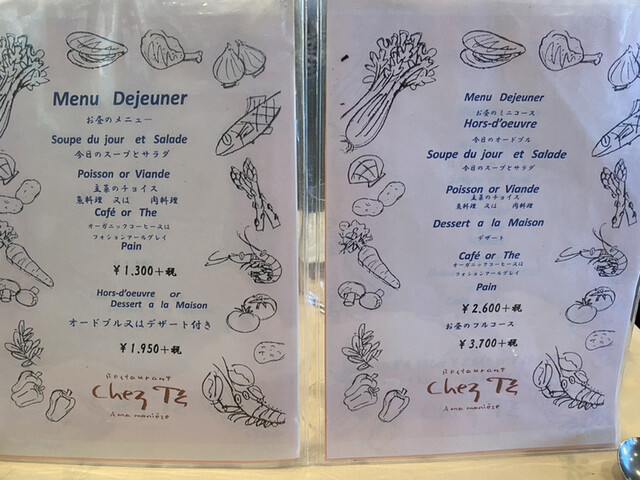 Menu Dejeuner
お昼のメニュー
Soupe du jour et Salade
今日のスープとサラダ
Poisson or Viande
主菜のチョイス
魚料理 又は 肉料理
Café or The
オーガニックコーヒー又は
フォションアールグレイ
Pain
¥1.300+税
Hors-d'oeuvre or
Dessert a la Maison
オードブル又はデザート付き
¥1.950+税
Restaurant
Chez
A ma manière
Menu Dejeuner
お昼のミニコース
Hors-d'oeuvre
今日のオードブル
Soupe du jour et Salade
今日のスープとサラダ
Poisson or Viande
主菜のチョイス
魚料理 又は 肉料理
Dessert a la Maison
デザート
Café or The
オーガニックコーヒー又は
フォションアールグレイ
Pain
¥2.600+税
お昼のフルコース
¥3.700+税
Restaurant
Chez
A ma manière